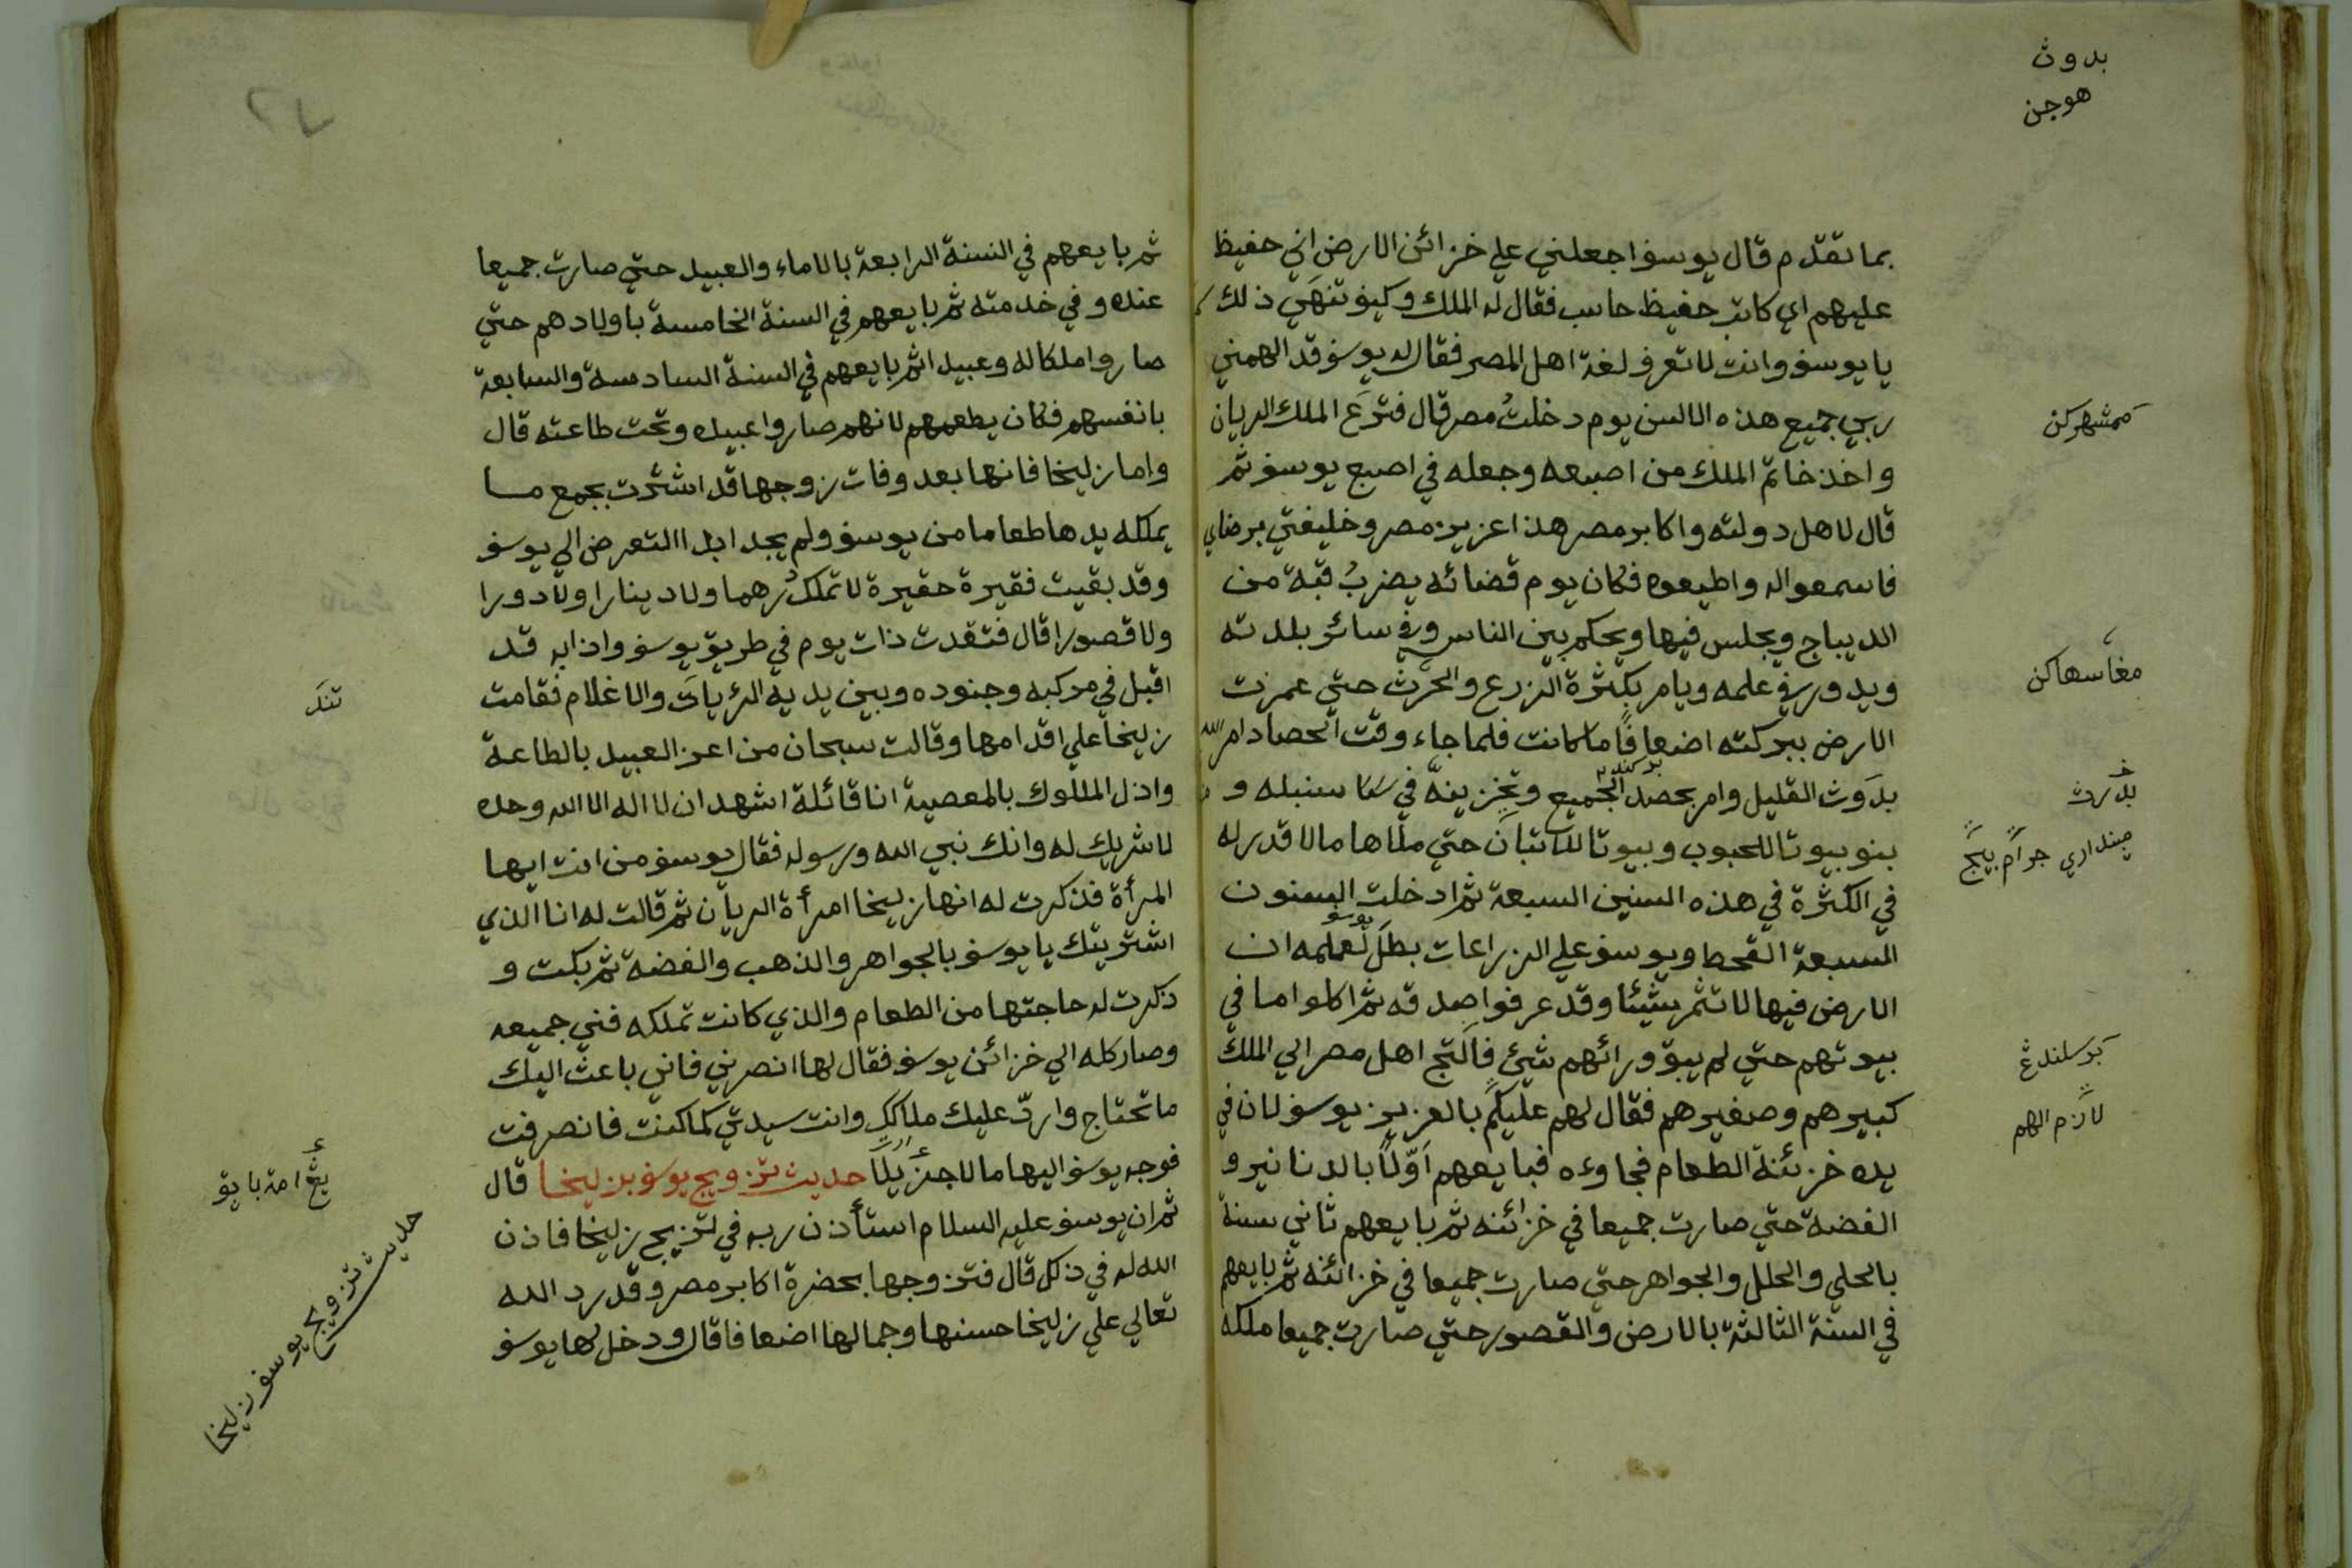 بدوث
هوجن
بما تقدم قال يوسف اجعلني علي خزائن الارض اني حفيظ
عليهم اي كاتب حفيظ حاسب فقال له الملك وكيف تنهي ذلك
يا يوسف وانت لا تعرف لغة اهل المصر فقال له يوسف قد الهمني
ربي جميع هذه الالسن يوم دخلت مصر قال فترع الملك الريان
واخذ خاتم الملك من اصبعه وجعله في اصبع يوسف ثم
قال لاهل دولته واكابر مصر هذا عزيز مصر وخليفتي برضاي
فاسمعوا له واطيعوه فكان يوم قضائه يضرب قبة من
الديباج ويجلس فيها ويحكم بين الناس وفي سائر بلدته
ويدور في علمه ويامر بكثرة الزرع والحرث حتي عمرت
الارض ببركته اضعافا ما كانت فلما جاء وقت الحصاد امر الله
بدوث القليل وامر بحصد الجميع وتخزينه في سنبله و
بنو بيوتا للحبوب وبيوتا للاتبان حتي ملاها مالا قدر له
في الكثرة في هذه السنين السبعة ثم ادخلت السنون
المسبعة القحط ويوسف علي الزراعات بطل لعلمه ان
الارض فيها لا تثمر شيئا وقد عرفوا صدقه ثم اكلوا ما في
بيوتهم حتي لم يبق ورائهم شيئ فالتج اهل مصر الي الملك
كبيرهم وصغيرهم فقال لهم عليكم بالعزيز يوسف لان في
يده خزئنة الطعام فجاوءه فبايعهم اولا بالدنانير و
الفضة حتي صارت جميعا في خزائنه ثم بايعهم ثاني سنة
بالحلي والحلل والجواهر حتي صارت جميعا في خزائنه ثم بايعهم
في السنة الثالثة بالارض والقصور حتي صارت جميعا ملكه
ممشهركن
مغاسهاكن
لازم الهم
ثم بايعهم في السنة الرابعة بالاماء والعبيد حتي صارت جميعا
عنده وفي خدمته ثم بايعهم في السنة الخامسة باولادهم حتي
صاروا ملكا له وعبيدا ثم بايعهم في السنة السادسة والسابعة
بانفسهم فكان يطعمهم لانهم صاروا عبيده وتحت طاعته قال
واما زليخا فانها بعد وفات زوجها قد اشترت بجمع ما
يملكه يدها طعاما من يوسف ولم يجد ابدا التعرض الي يوسف
وقد بقيت فقيرة حقيرة لا تملك درهما ولا دينارا ولا دورا
ولا قصورا قال فتقدت ذات يوم في طريق يوسف واذا به قد
اقبل في مركبه وجنوده وبين يديه الريات والاغلام فقامت
زليخا علي اقدامها وقالت سبحان من اعز العبيد بالطاعة
واذل الملوك بالمعصية انا قائلة اشهد ان لا اله الا الله وحده
لا شريك له وانك نبي الله ورسوله فقال يوسف من انت ايها
المرأة فذكرت له انها زليخا امرأة الريان ثم قالت له انا الذي
اشتريتك يا يوسف بالجواهر والذهب والفضة ثم بكت و
ذكرت له حاجتها من الطعام والذي كانت تملكه فني جميعه
وصار كله الي خزائن يوسف فقال لها انصرني فاني باعث اليك
ما تحتاج وارد عليك ملاكك وانت سيدتي كما كنت فانصرفت
فوجه يوسف اليها مالا جزيلا حديث تزويج يوسف بزليخا قال
ثم ان يوسف عليه السلام استأذن ربه في تزيج زليخا فاذن
الله له في ذكل قال فتزوجها بحضرة اكابر مصر وقد رد الله
تعالي علي زليخا حسنها وجمالها اضعافا قال ودخل لها يوسف
تتك
حديث تزويج يوسف زليخا